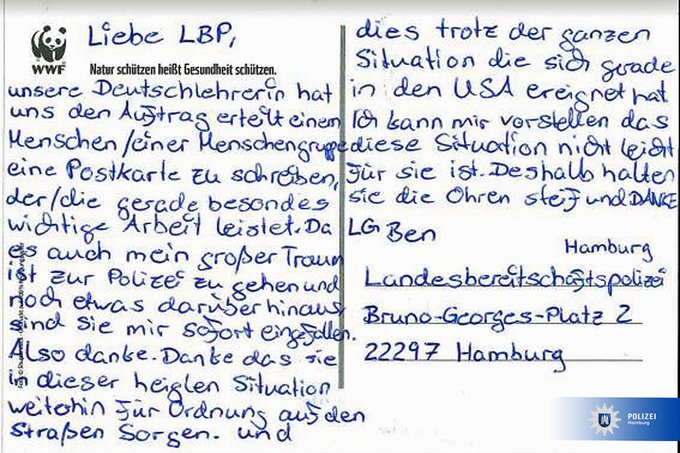 WWF
Liebe LBP,
Natur schützen heißt Gesundheit schützen.
unsere Deutschlehrerin hat
uns den Auftrag erteilt einem
Menschen/einer Menschengruppe
eine Postkarte zu schreiben,
der/die gerade besondes
wichtige Arbeit leistet. Da
es auch mein großer Traum
ist zur Polizei zu gehen und
noch etwas darüber hinaus,
sind sie mir sofort eingefallen.
Also danke. Danke das sie
in dieser heiglen Situation
weiterhin für Ordnung auf den
Straßen Sorgen. und
dies trotz der ganzen
Situation die sich gerade
in den USA ereignet hat
Ich kann mir vorstellen das
diese Situation nicht leicht
für sie ist. Deshalb halten
sie die Ohren steif und DANKE
LG Ben
Hamburg
Landesbereitschaftspolizei
Bruno-Georges-Platz 2
22297 Hamburg
POLIZEI
Hamburg